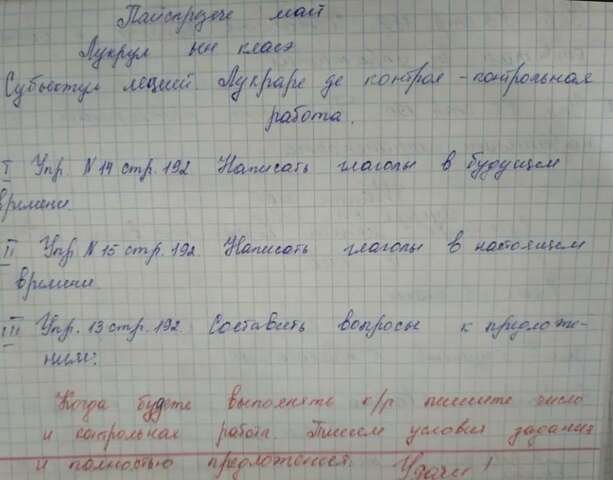 Пайспрезече май
Лукрул ын класэ
Субьектул лецией. Лукраре де контрол - контрольная
работа.
I Упр. N 14 стр. 192 Написать глаголы в будущем
времени.
II Упр. N 15 стр. 192. Написать глаголы в настоящем
времени.
III Упр. 13 стр. 192. Составить вопросы к предложе-
ниям:
Когда будете выполнять к/р пишите число
и контрольная работа. Пишем условия задания
и полностью предложения. Удачи!